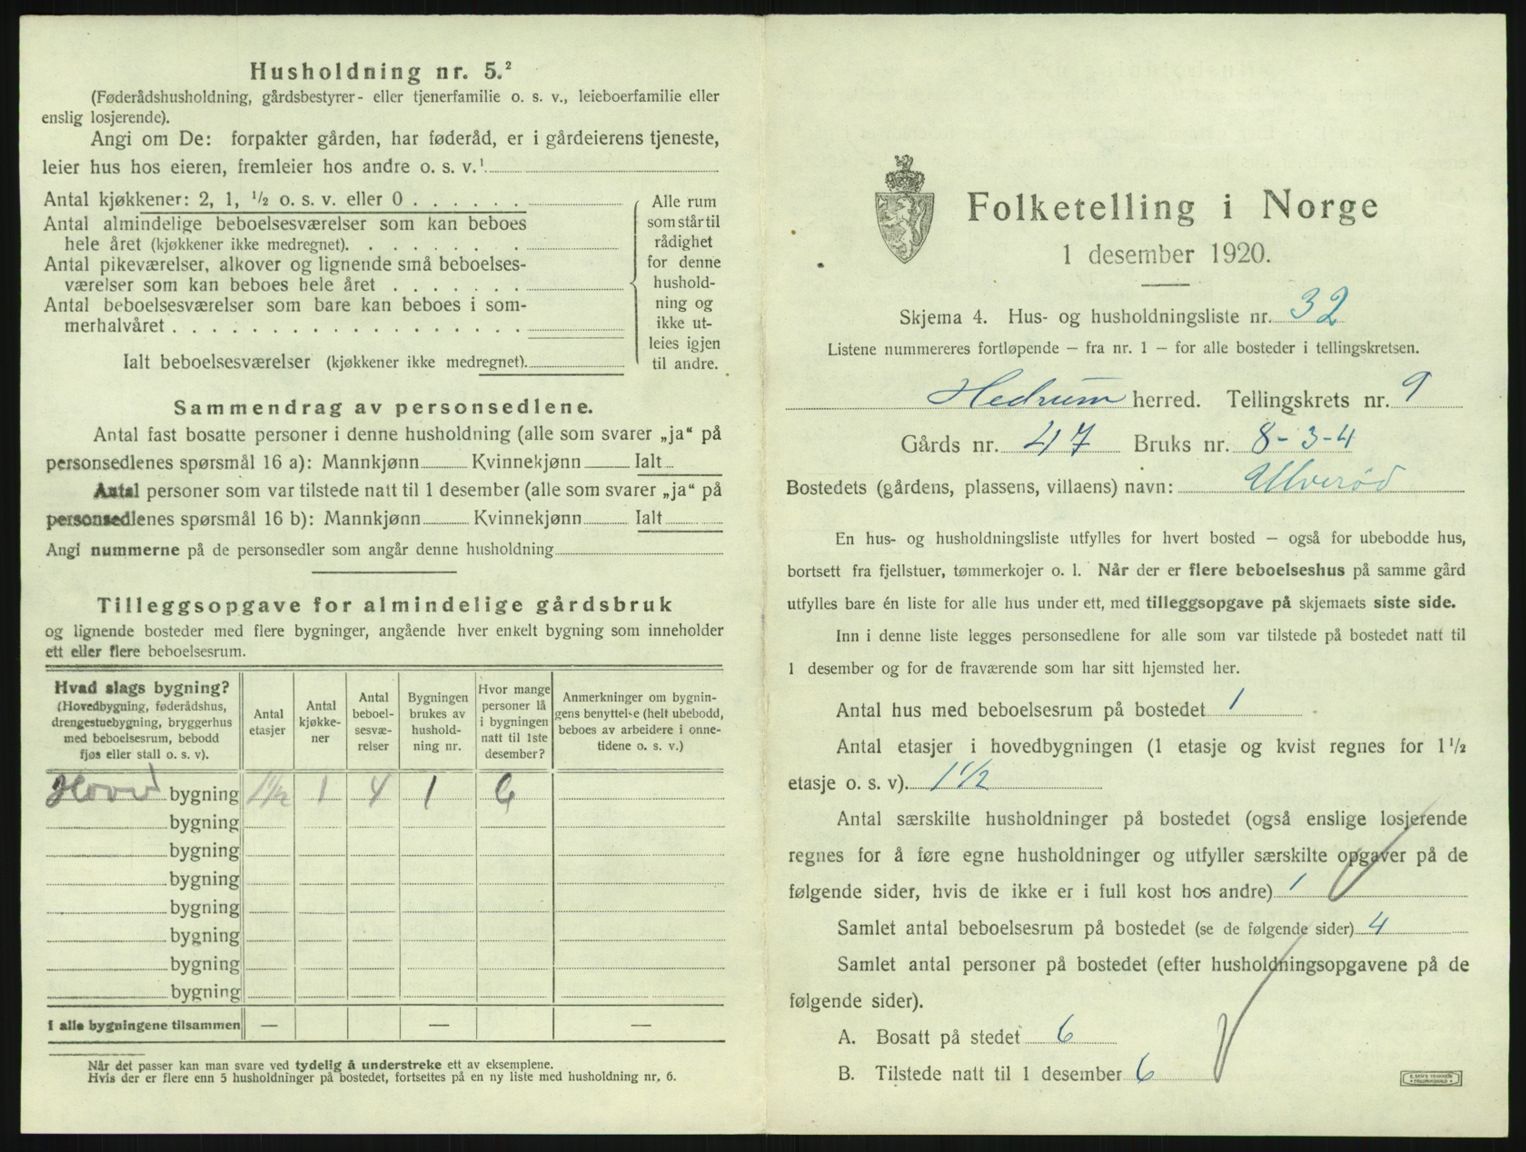 Husholdning nr. 5.²
(Føderådshusholdning, gårdsbestyrer- eller tjenerfamilie o. s. v., leieboerfamilie eller
enslig losjerende).
Angi om De: forpakter gården, har føderåd, er i gårdeierens tjeneste,
leier hus hos eieren, fremleier hos andre o. s. v.¹
Antal kjøkkener: 2, 1, ½ o. s. v. eller 0
Antal almindelige beboelsesværelser som kan beboes
hele året (kjøkkener ikke medregnet).
Antal pikeværelser, alkover og lignende små beboelses-
værelser som kan beboes hele året
Antal beboelsesværelser som bare kan beboes i som-
merhalvåret
Ialt beboelsesværelser (kjøkkener ikke medregnet).
Alle rum
som står til
rådighet
for denne
hushold-
ning og
ikke ut-
leies igjen
til andre.
Sammendrag av personsedlene.
Antal fast bosatte personer i denne husholdning (alle som svarer „ja“ på
personsedlenes spørsmål 16 a): Mannkjønn Kvinnekjønn Ialt
Antal personer som var tilstede natt til 1 desember (alle som svarer „ja“ på
personsedlenes spørsmål 16 b): Mannkjønn Kvinnekjønn Ialt
Angi nummerne på de personsedler som angår denne husholdning
Tilleggsopgave for almindelige gårdsbruk
og lignende bosteder med flere bygninger, angående hver enkelt bygning som inneholder
ett eller flere beboelsesrum.
Hvad slags bygning?
(Hovedbygning, føderådshus,
drengestuebygning, bryggerhus
med beboelsesrum, bebodd
fjøs eller stall o. s. v).
Antal
etasjer
Antal
kjøkke-
ner
Antal
beboel-
sesvæ-
relser
Bygningen
brukes av
hushold-
ning nr.
Hvor mange
personer lå
i bygningen
natt til 1ste
desember?
Anmerkninger om bygnin-
gens benyttelse (helt ubebodd,
beboes av arbeidere i onne-
tidene o. s. v.)
Hoved bygning 1½ 1 4 1 6
bygning
bygning
bygning
bygning
bygning
bygning
bygning
I alle bygningene tilsammen — — —
Når det passer kan man svare ved tydelig å understreke ett av eksemplene.
Hvis der er flere enn 5 husholdninger på bostedet, fortsettes på en ny liste med husholdning nr, 6.
Folketelling i Norge
1 desember 1920.
Skjema 4. Hus- og husholdningsliste nr. 32
Listene nummereres fortløpende — fra nr. 1 — for alle bosteder i tellingskretsen.
Hedrum herred. Tellingskrets nr. 9
Gårds nr. 47 Bruks nr. 8-3-4
Bostedets (gårdens, plassens, villaens) navn: Ulverød
En hus- og husholdningsliste utfylles for hvert bosted — også for ubebodde hus,
bortsett fra fjellstuer, tømmerkojer o. l. Når der er flere beboelseshus på samme gård
utfylles bare én liste for alle hus under ett, med tilleggsopgave på skjemaets siste side.
Inn i denne liste legges personsedlene for alle som var tilstede på bostedet natt til
1 desember og for de fraværende som har sitt hjemsted her.
Antal hus med beboelsesrum på bostedet 1
Antal etasjer i hovedbygningen (1 etasje og kvist regnes for 1½
etasje o. s. v). 1½
Antal særskilte husholdninger på bostedet (også enslige losjerende
regnes for å føre egne husholdninger og utfyller særskilte opgaver på de
følgende sider, hvis de ikke er i full kost hos andre) 1
Samlet antal beboelsesrum på bostedet (se de følgende sider) 4
Samlet antal personer på bostedet (efter husholdningsopgavene på de
følgende sider).
A. Bosatt på stedet 6
B. Tilstede natt til 1 desember 6